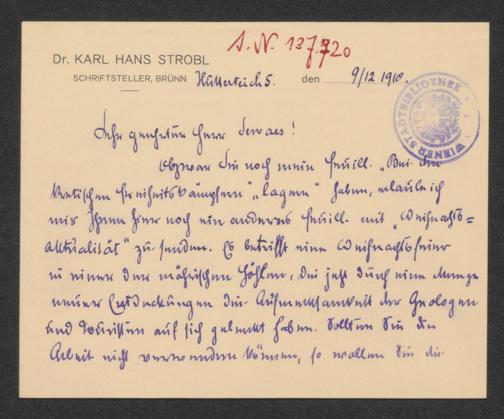 J. N. 137.720
Dr. KARL HANS STROBL
SCHRIFTSTELLER, BRÜNN Hutterteich 5. den 9/12 1910.
WIENER STADTBIBLIOTHEK
Sehr geehrter Herr Servaes!
Obzwar Sie noch mein Feuill. „Bei den
kretischen Freiheitskämpfern" „lagern" haben, erlaube ich
mir Ihnen hier noch ein anderes Feuill. mit „Weihnachts=
aktualität" zu senden. Es betrifft eine Weihnachtsfeier
in einer der mährischen Höhlen, die jetzt durch eine Menge
neuer Entdeckungen die Aufmerksamkeit der Geologen
und Touristen auf sich gelenkt haben. Sollten Sie die
Arbeit nicht verwenden können, so wollen Sie die